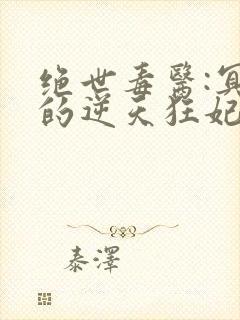 绝世毒醫:冥
的逆天狂妃
泰澤